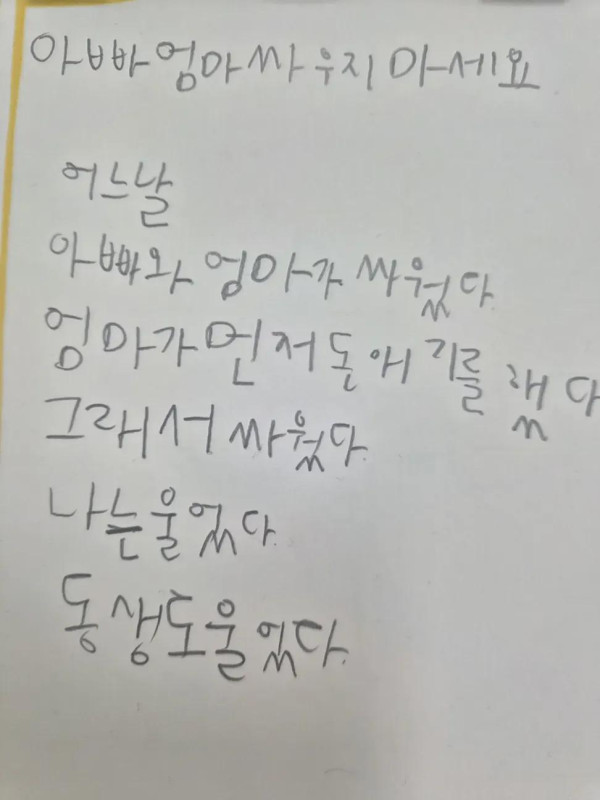 아빠엄마싸우지 마세요
어느날
아빠와 엄마가 싸웠다
엄마가먼저돈애기를 했다
그래서 싸웠다.
나는울었다.
동생도울었다.